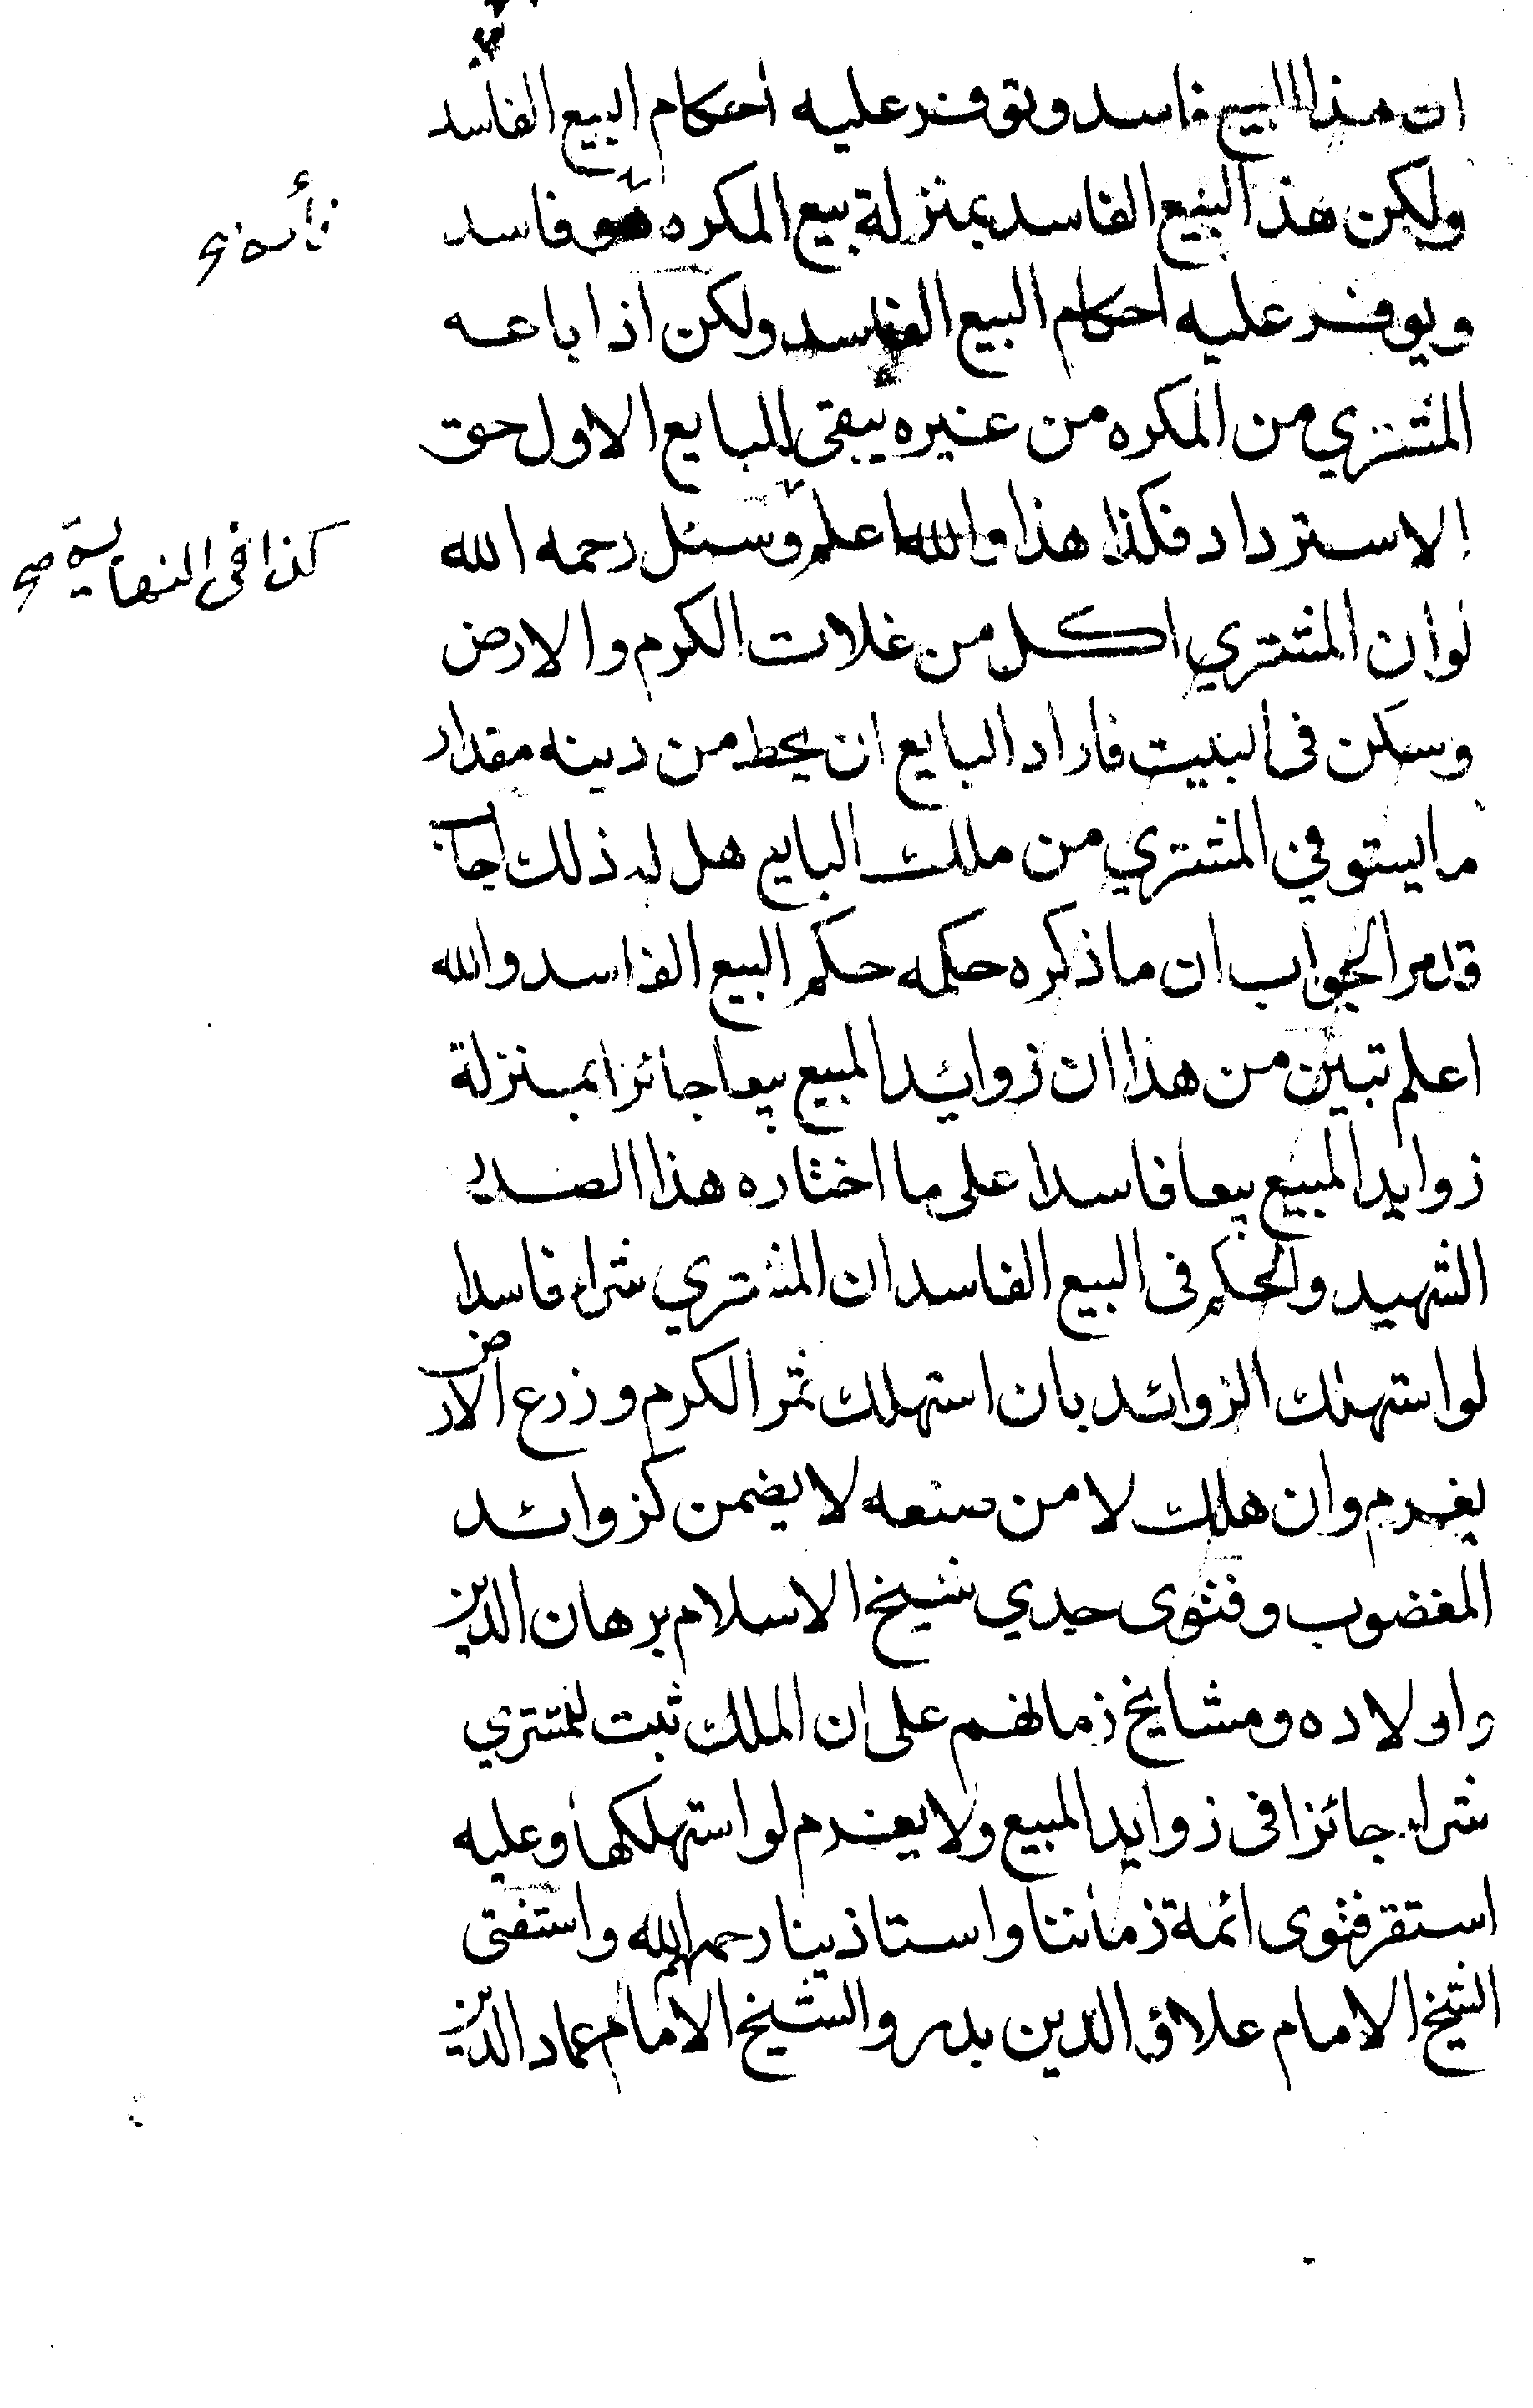 ان هذا البيع فاسد وتوفر عليه احكام البيع الفاسد
ولكن هذا البيع الفاسد بمنزلة بيع المكره هو فاسد
ويوفر عليه احكام البيع الفاسد ولكن اذا باعه
المشتري من المكره من غيره يبقى للبايع الاول حق
الاسترداد فكذا هذا والله اعلم وسئل رحمه الله
كذا فى النهاية صح
لو ان المشتري اكل من غلات الكرم والارض
وسكن فى البيت فاراد البايع ان يحط من دينه مقدار
ما يستوفي المشتري من ملك البايع هل له ذلك اجاب
قدم الجواب ان ما ذكره حكمه حكم البيع الفاسد والله
اعلم تبين من هذا ان زوائد المبيع بيعا جائزا بمنزلة
زوايد المبيع بيعا فاسدا على ما اختاره هذا الصدر
الشهيد والحكم فى البيع الفاسد ان المشتري شراء فاسدا
لو استهلك الزوائد بان استهلك ثمر الكرم وزرع الارض
يغرم وان هلك لا من صنعه لا يضمن كزوائد
المغضوب وفتوى جدي شيخ الاسلام برهان الدين
واولاده ومشايخ زمانهم على ان الملك ثبت للمشتري
شراء جائزا فى زوايد المبيع ولا يغرم لو استهلكها وعليه
استقر فتوى ائمة زماننا واستاذينا رحمهم الله واستفتى
الشيخ الامام علاؤ الدين بدر والشيخ الامام عماد الدين